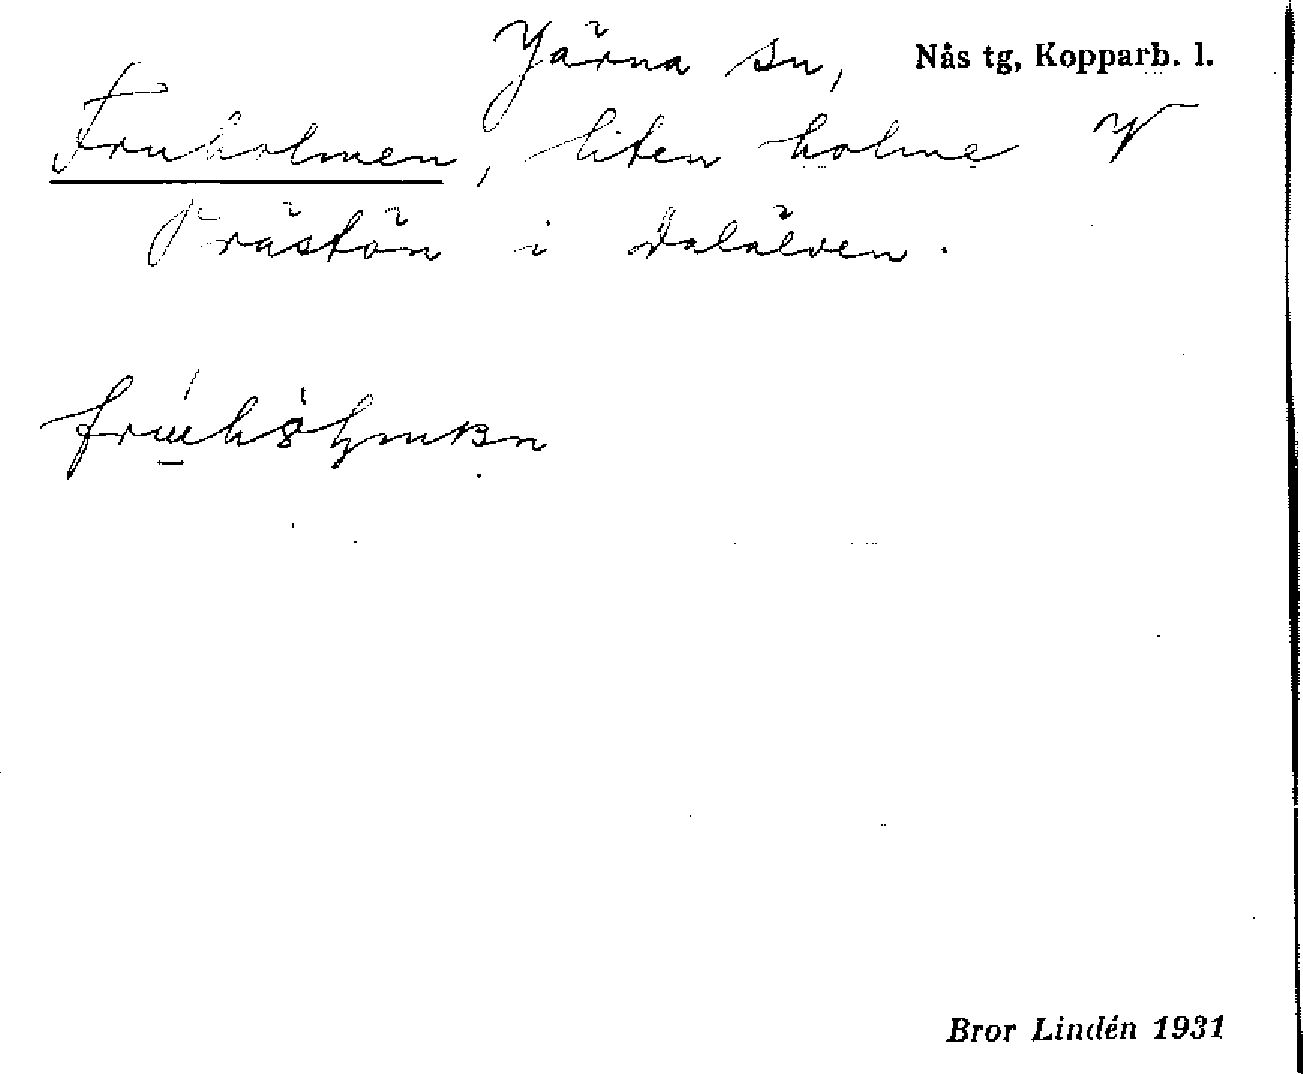 Järna sn, Nås tg, Kopparb. l.
Fruholmen, liten holme V
Prästön i Dalälven.
Bror Lindén 1931